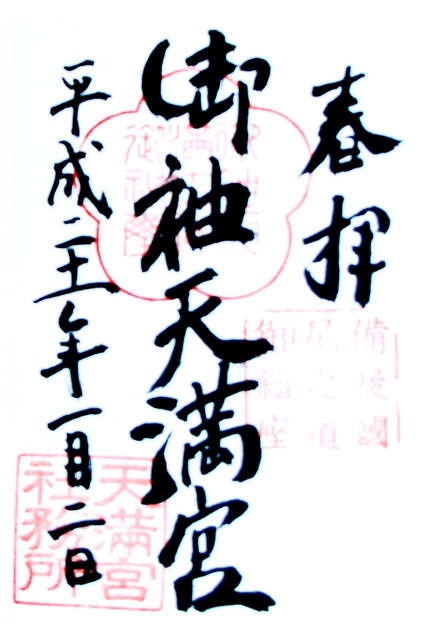 奉拝
備後國
尾之道
御鎮座
御袖天満宮
平成二十一年一月二日
天満宮
社務所